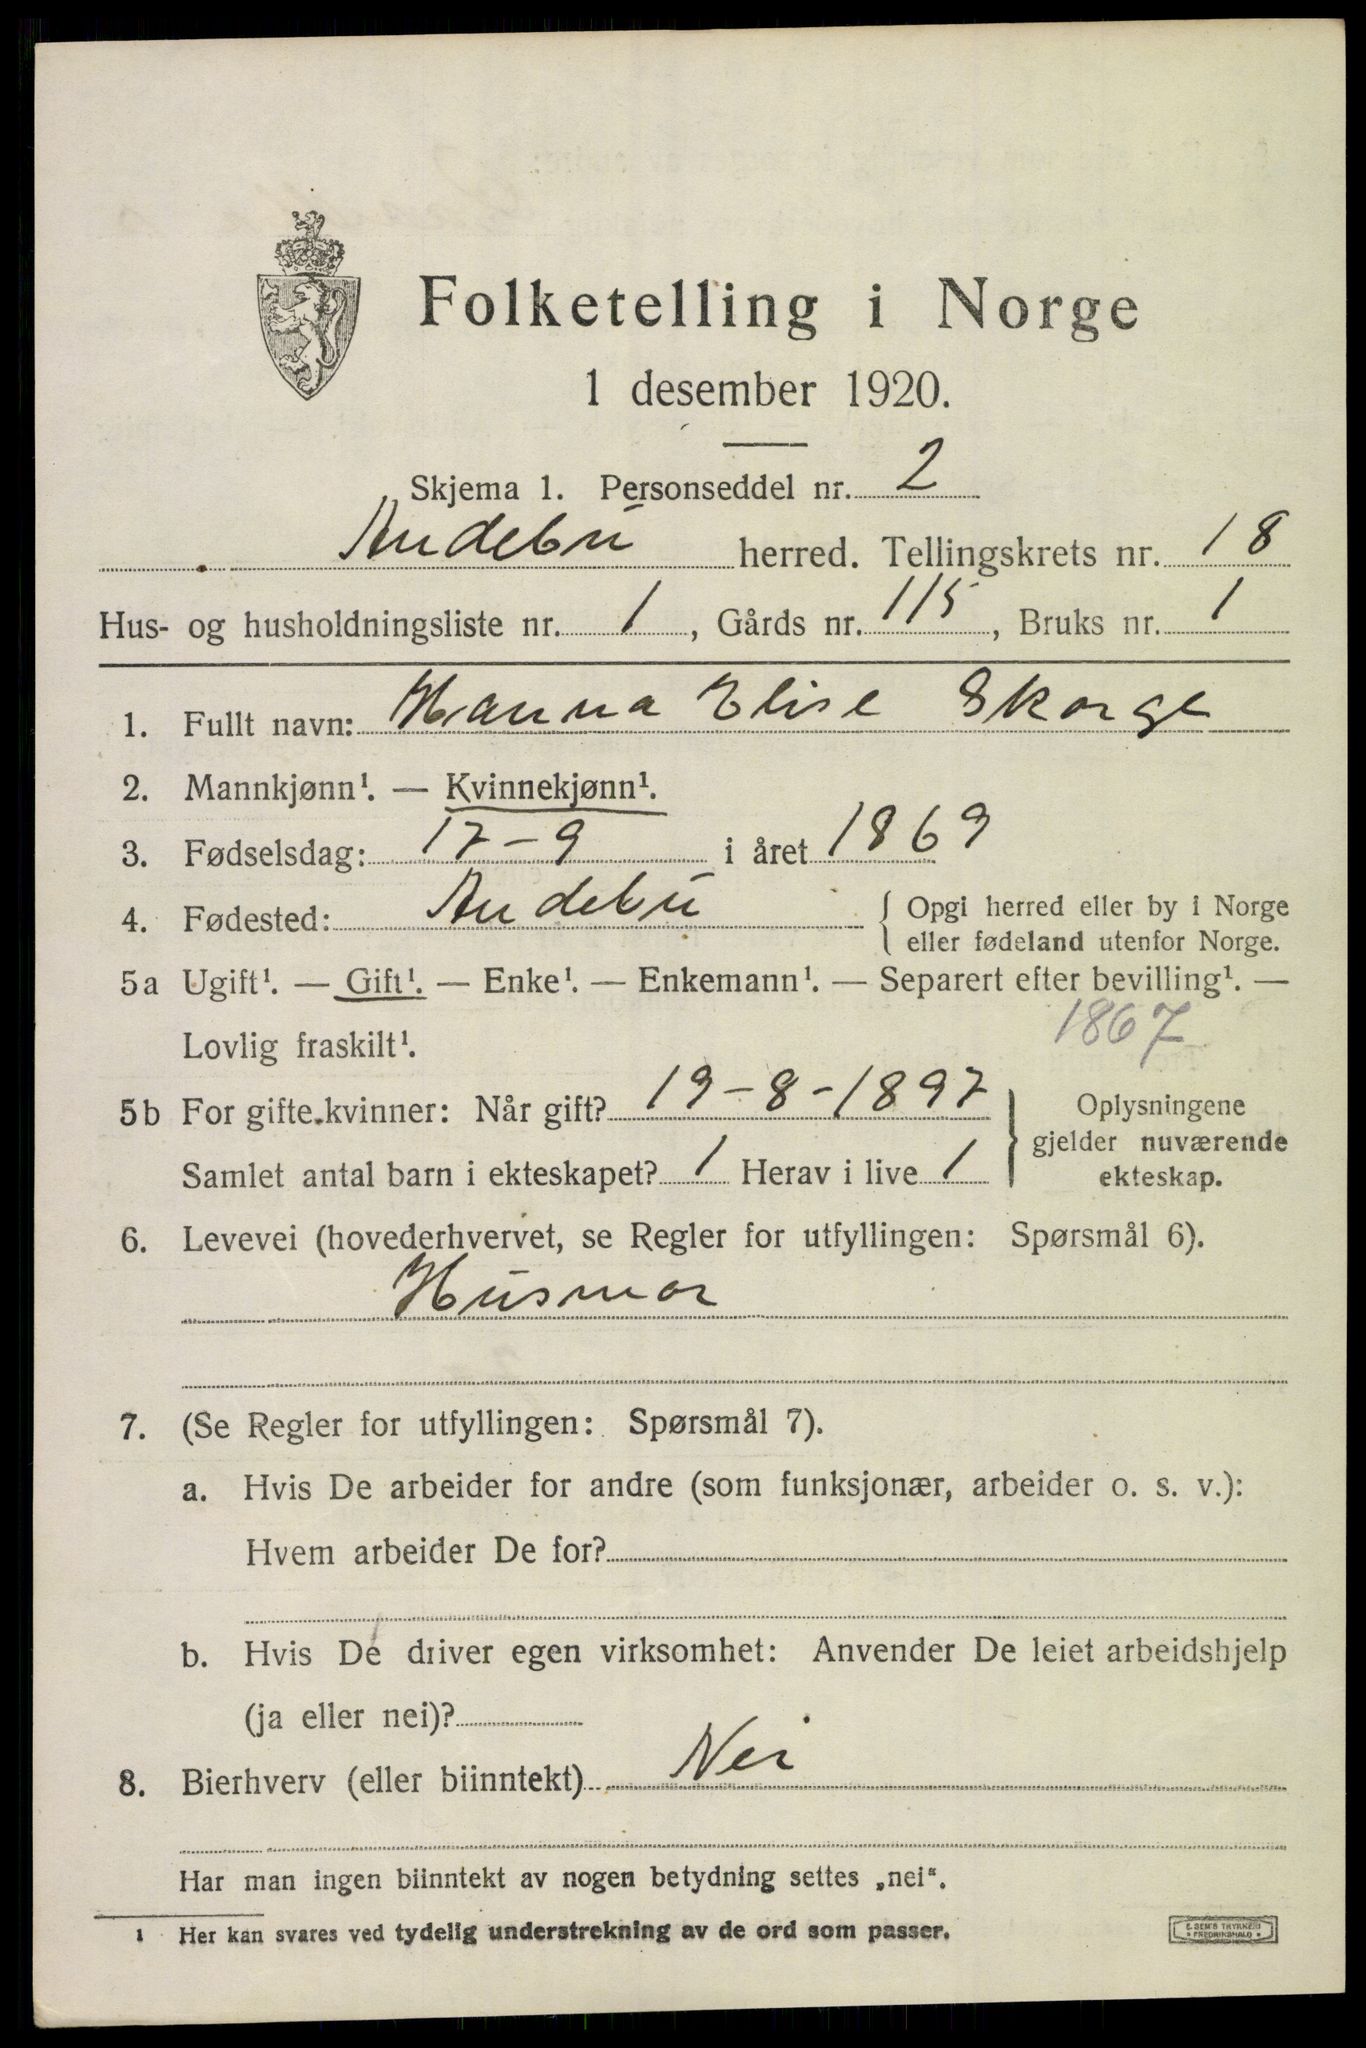 Folketelling i Norge
1 desember 1920.
Skjema 1. Personseddel nr. 2
Andebu herred. Tellingskrets nr. 18
Hus- og husholdningsliste nr. 1, Gårds nr. 115, Bruks nr. 1
1. Fullt navn: Hanna Elise Skorge
2. Mannkjønn¹. — Kvinnekjønn¹.
3. Fødselsdag: 17-9 i året 1869
4. Fødested: Andebu { Opgi herred eller by i Norge
eller fødeland utenfor Norge.
5a Ugift¹. — Gift¹. — Enke¹. — Enkemann¹. — Separert efter bevilling¹. —
Lovlig fraskilt¹. 1867
5b For gifte kvinner: Når gift? 19-8-1897 } Oplysningene
gjelder nuværende
Samlet antal barn i ekteskapet? 1 Herav i live 1 ekteskap.
6. Levevei (hovederhvervet, se Regler for utfyllingen: Spørsmål 6).
Husmor
7. (Se Regler for utfyllingen: Spørsmål 7).
a. Hvis De arbeider for andre (som funksjonær, arbeider o. s. v.):
Hvem arbeider De for?
b. Hvis De driver egen virksomhet: Anvender De leiet arbeidshjelp
(ja eller nei)?
8. Bierhverv (eller biinntekt) Nei
Har man ingen biinntekt av nogen betydning settes „nei“.
¹ Her kan svares ved tydelig understrekning av de ord som passer.
E. SEM'S TRYKKERI
FREDRIKSHALD